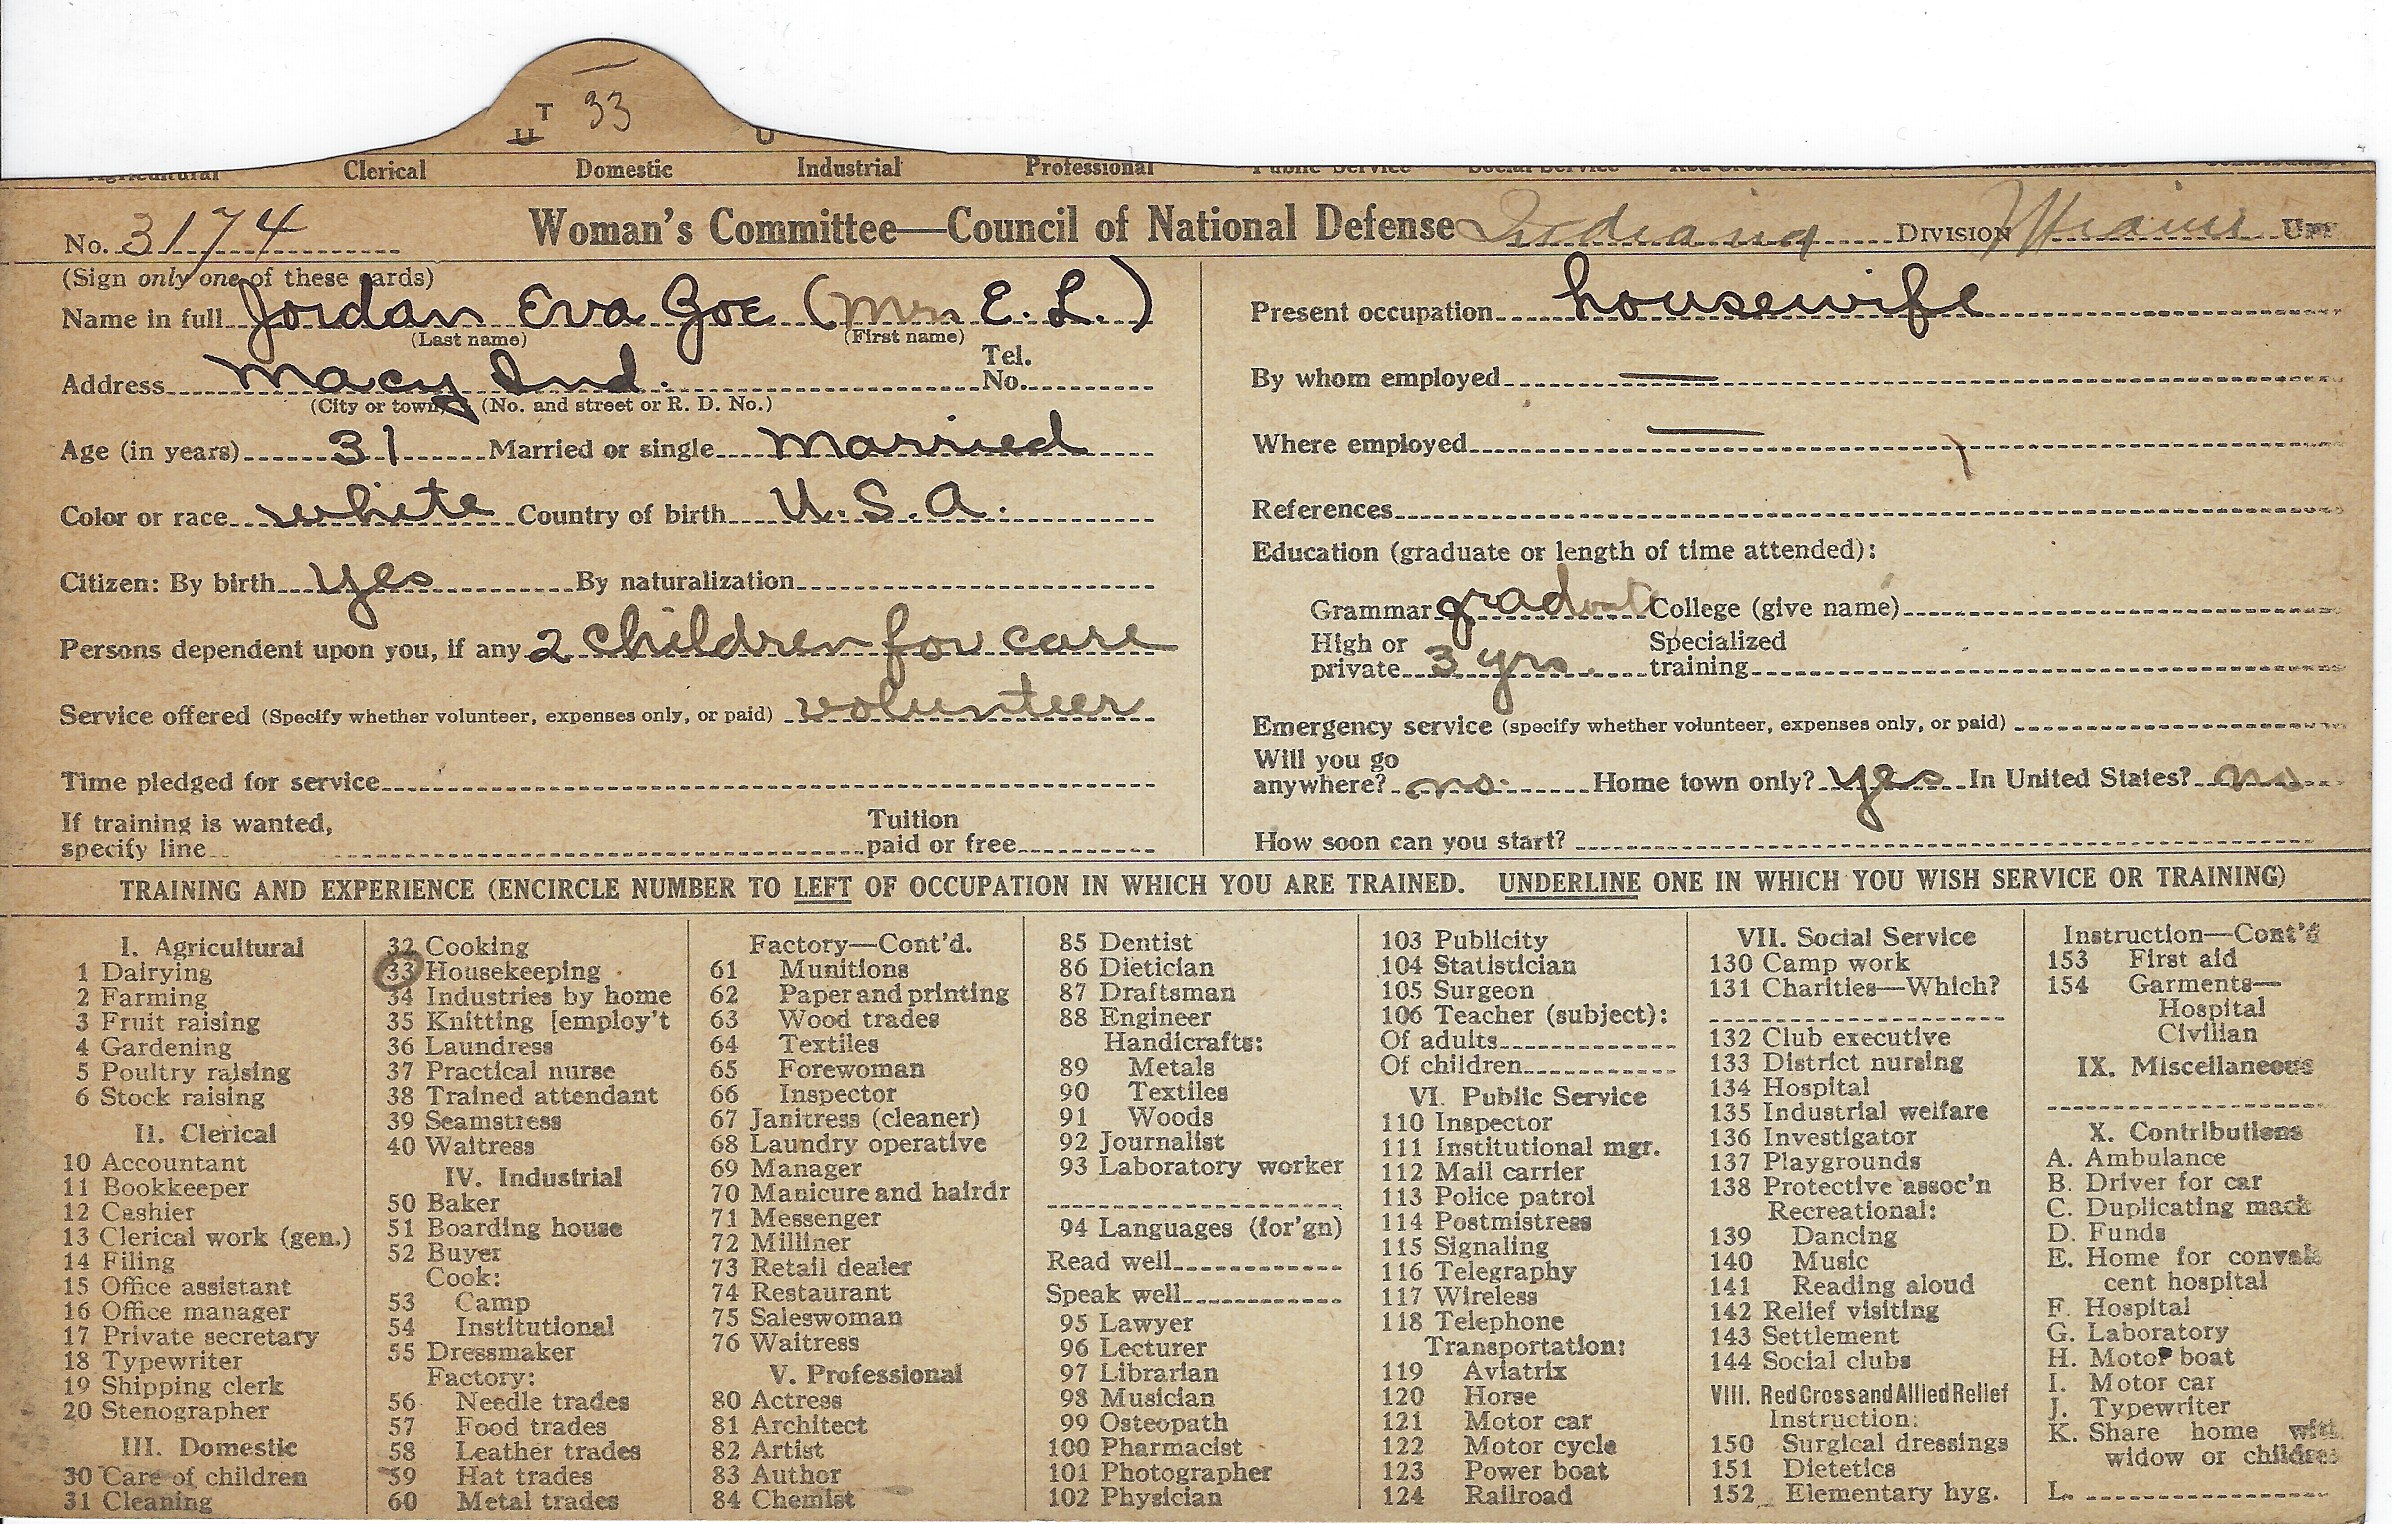 T 33
U U
Agricultural Clerical Domestic Industrial Professional Public Service Social Service
No. 3174 Woman's Committee—Council of National Defense Indiana DIVISION Miami UNIT
(Sign only one of these cards)
Name in full Jordan Eva Goe (Mrs E. L.)
(Last name) (First name)
Address Macy Ind. Tel. No.
(City or town) (No. and street or R. D. No.)
Age (in years) 31 Married or single married
Color or race white Country of birth U.S.A.
Citizen: By birth yes By naturalization
Persons dependent upon you, if any 2 children for care
Service offered (Specify whether volunteer, expenses only, or paid) volunteer
Time pledged for service
If training is wanted, specify line Tuition paid or free
Present occupation housewife
By whom employed —
Where employed —
References
Education (graduate or length of time attended):
Grammar graduate College (give name)
High or private 3 yrs. Specialized training
Emergency service (specify whether volunteer, expenses only, or paid)
Will you go anywhere? no. Home town only? yes In United States? no
How soon can you start?
TRAINING AND EXPERIENCE (ENCIRCLE NUMBER TO LEFT OF OCCUPATION IN WHICH YOU ARE TRAINED. UNDERLINE ONE IN WHICH YOU WISH SERVICE OR TRAINING)
I. Agricultural
1 Dairying
2 Farming
3 Fruit raising
4 Gardening
5 Poultry raising
6 Stock raising
II. Clerical
10 Accountant
11 Bookkeeper
12 Cashier
13 Clerical work (gen.)
14 Filing
15 Office assistant
16 Office manager
17 Private secretary
18 Typewriter
19 Shipping clerk
20 Stenographer
III. Domestic
30 Care of children
31 Cleaning
32 Cooking
33 Housekeeping
34 Industries by home
35 Knitting [employ't
36 Laundress
37 Practical nurse
38 Trained attendant
39 Seamstress
40 Waitress
IV. Industrial
50 Baker
51 Boarding house
52 Buyer
Cook:
53 Camp
54 Institutional
55 Dressmaker
Factory:
56 Needle trades
57 Food trades
58 Leather trades
59 Hat trades
60 Metal trades
Factory—Cont'd.
61 Munitions
62 Paper and printing
63 Wood trades
64 Textiles
65 Forewoman
66 Inspector
67 Janitress (cleaner)
68 Laundry operative
69 Manager
70 Manicure and hairdr
71 Messenger
72 Milliner
73 Retail dealer
74 Restaurant
75 Saleswoman
76 Waitress
V. Professional
80 Actress
81 Architect
82 Artist
83 Author
84 Chemist
85 Dentist
86 Dietician
87 Draftsman
88 Engineer
Handicrafts:
89 Metals
90 Textiles
91 Woods
92 Journalist
93 Laboratory worker
94 Languages (for'gn)
Read well
Speak well
95 Lawyer
96 Lecturer
97 Librarian
98 Musician
99 Osteopath
100 Pharmacist
101 Photographer
102 Physician
103 Publicity
104 Statistician
105 Surgeon
106 Teacher (subject):
Of adults
Of children
VI. Public Service
110 Inspector
111 Institutional mgr.
112 Mail carrier
113 Police patrol
114 Postmistress
115 Signaling
116 Telegraphy
117 Wireless
118 Telephone
Transportation:
119 Aviatrix
120 Horse
121 Motor car
122 Motor cycle
123 Power boat
124 Railroad
VII. Social Service
130 Camp work
131 Charities—Which?
132 Club executive
133 District nursing
134 Hospital
135 Industrial welfare
136 Investigator
137 Playgrounds
138 Protective assoc'n
Recreational:
139 Dancing
140 Music
141 Reading aloud
142 Relief visiting
143 Settlement
144 Social clubs
VIII. Red Cross and Allied Relief
Instruction:
150 Surgical dressings
151 Dietetics
152 Elementary hyg.
Instruction—Cont'd
153 First aid
154 Garments—
Hospital
Civilian
IX. Miscellaneous
X. Contributions
A. Ambulance
B. Driver for car
C. Duplicating mach
D. Funds
E. Home for convales
cent hospital
F. Hospital
G. Laboratory
H. Motor boat
I. Motor car
J. Typewriter
K. Share home with
widow or children
L.